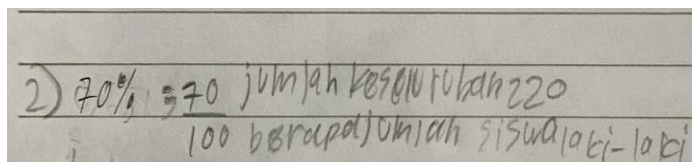 2) 70% = 70 jumlah keseluruhan 220
100 berapa jumlah siswa laki-laki